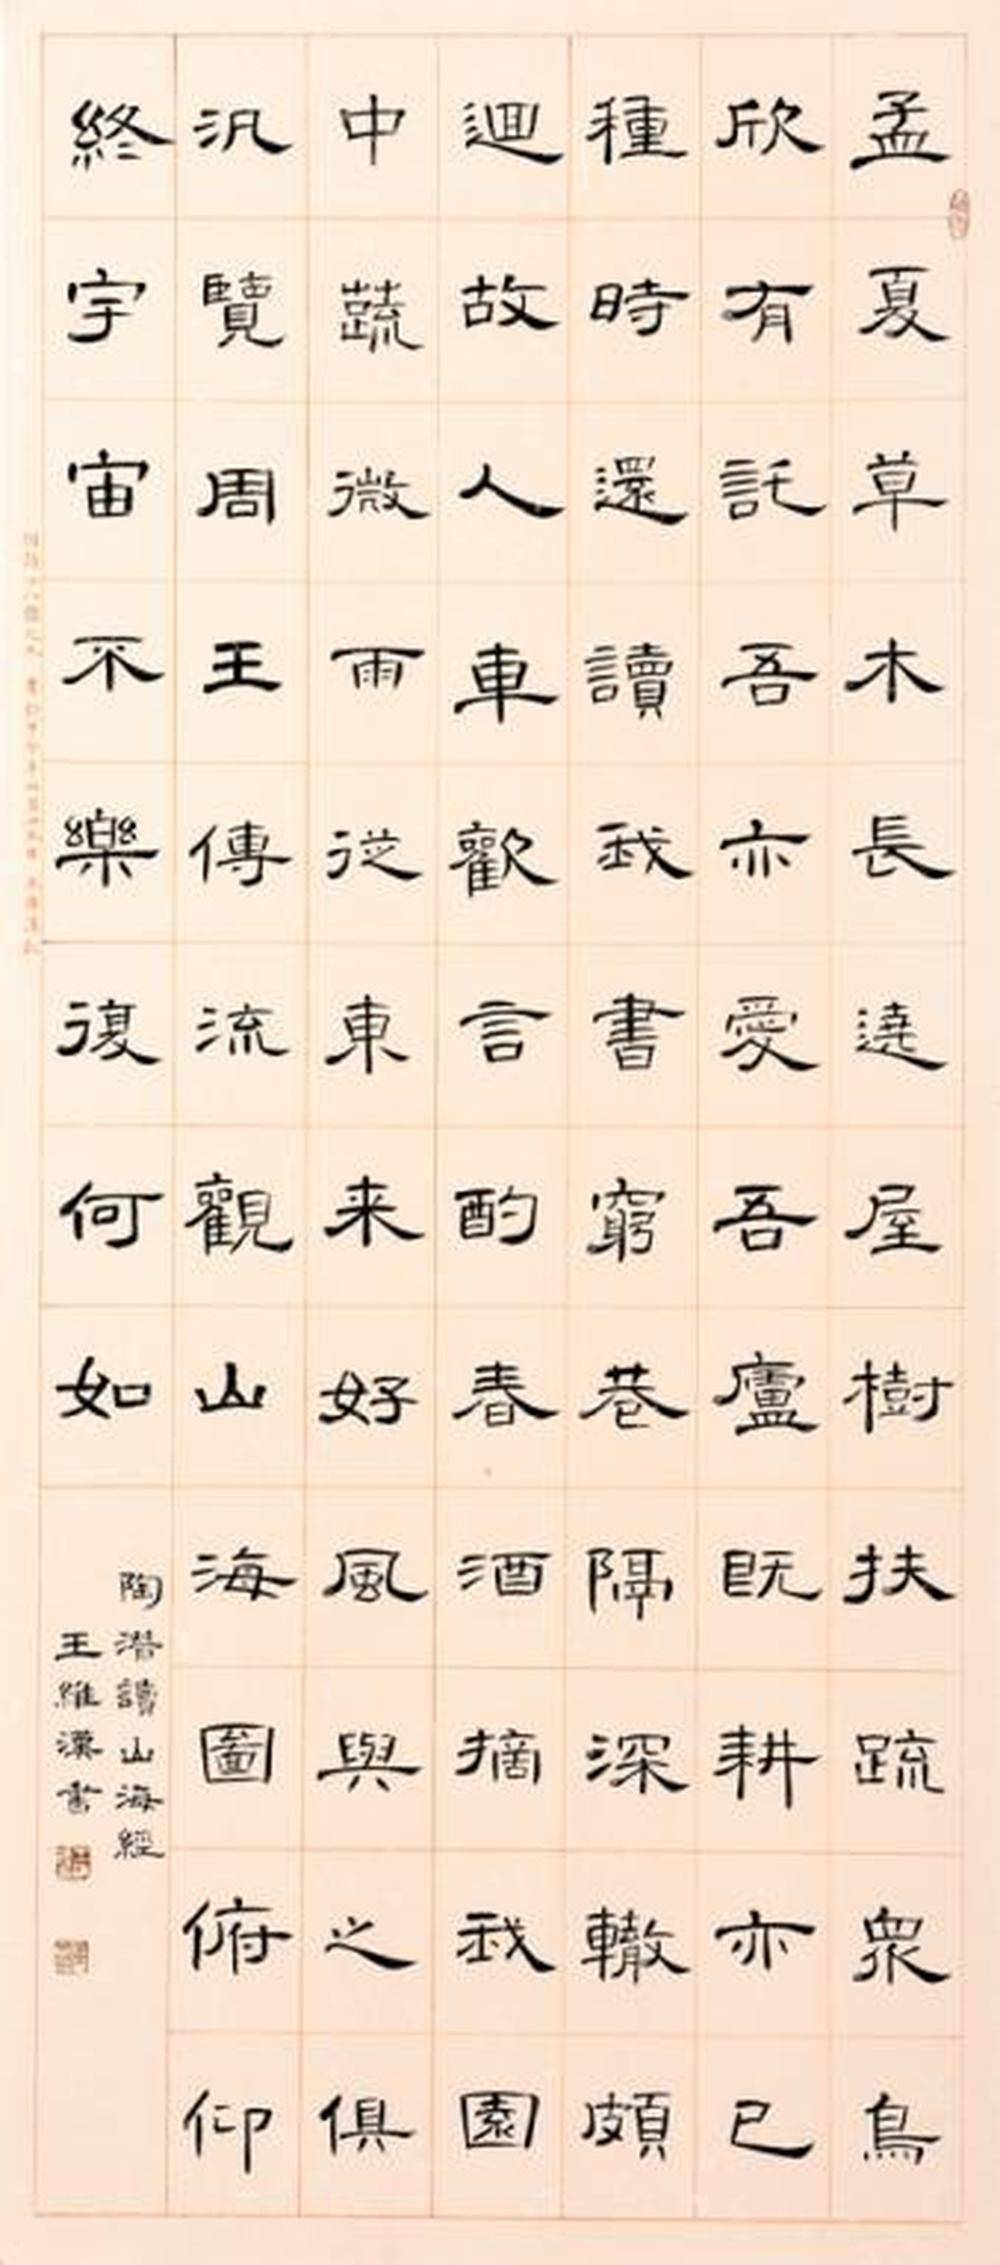 孟夏草木長遶屋樹扶疏眾鳥
欣有託吾亦愛吾廬既耕亦已
種時還讀我書窮巷隔深轍頗
迴故人車歡言酌春酒摘我園
中蔬微雨從東来好風與之俱
汎覽周王傳流觀山海圖俯仰
終宇宙不樂復何如
陶潛讀山海經
王維漢書